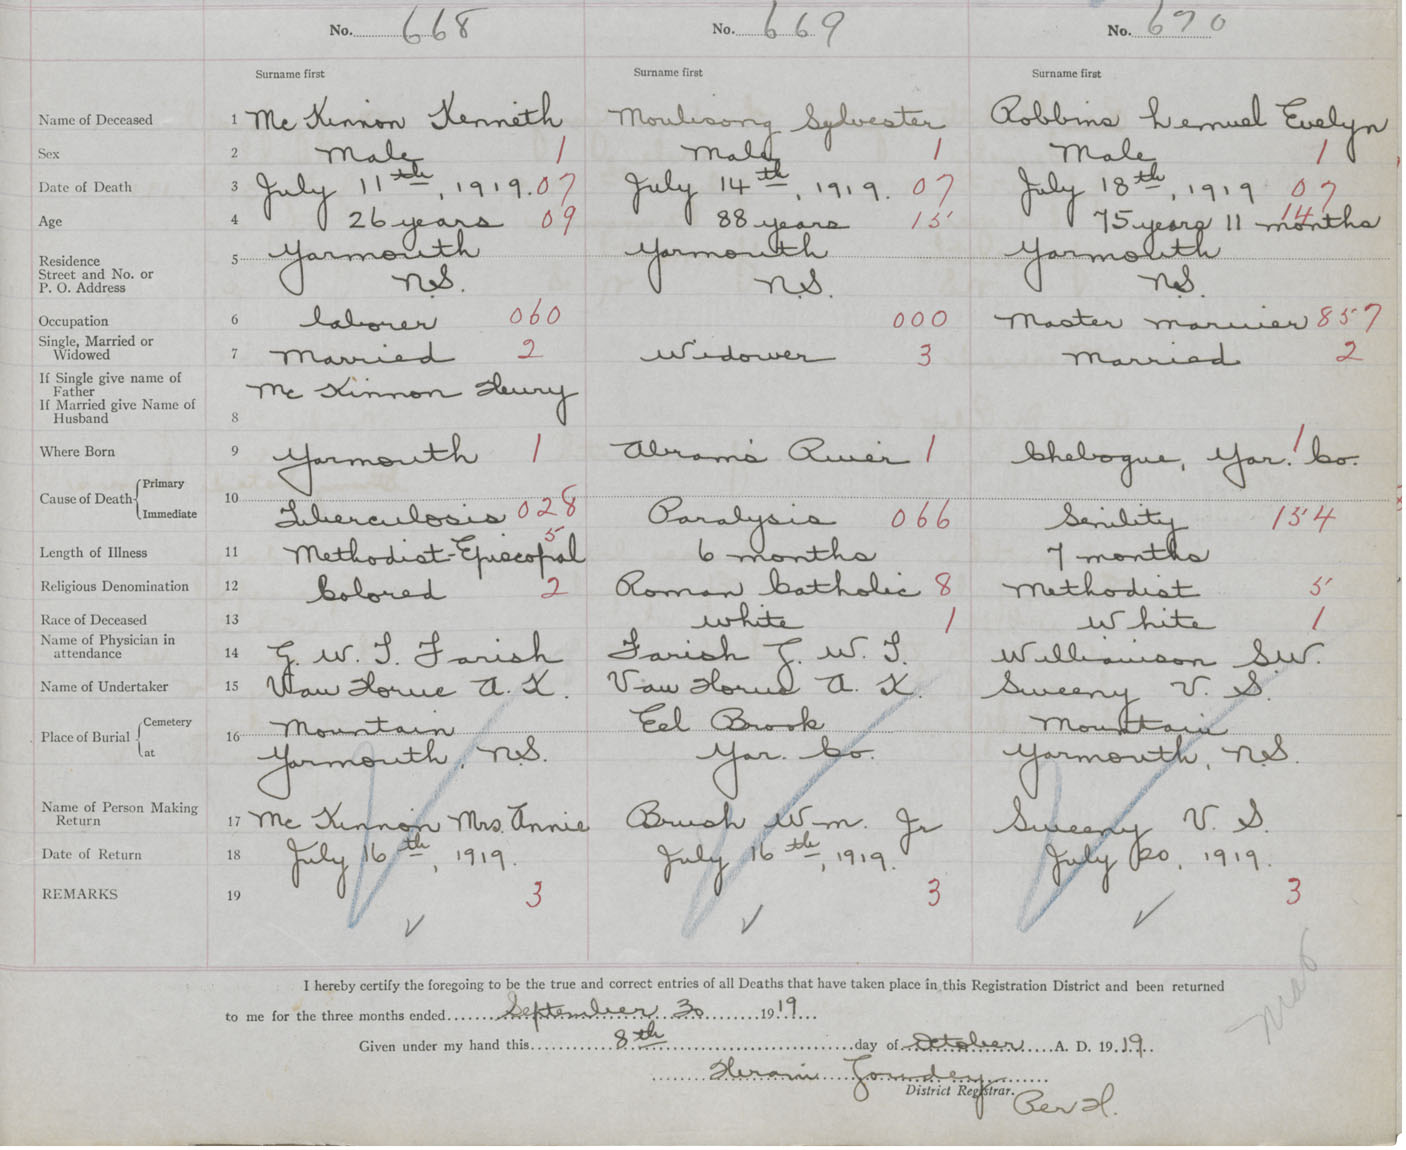 No. 668 No. 669 No. 670
Surname first Surname first Surname first
Name of Deceased 1 Mc Kinnon Kenneth Moulisong Sylvester Robbins Lemuel Evelyn
Sex 2 Male 1 Male 1 Male 1
Date of Death 3 July 11th, 1919. 07 July 14th, 1919. 07 July 18th, 1919 07
Age 4 26 years 09 88 years 15 75 years 11 months 14
Residence
Street and No. or
P. O. Address
5 Yarmouth Yarmouth Yarmouth
N.S. N.S. N.S.
Occupation 6 laborer 060 000 Master mariner 857
Single, Married or
Widowed 7 Married 2 Widower 3 Married 2
If Single give name of
Father
If Married give Name of
Husband 8 Mc Kinnon Henry
Where Born 9 Yarmouth 1 Abram's River 1 Chebogue, Yar. Co. 1
Cause of Death Primary
Immediate 10 Tuberculosis 028 Paralysis 066 Senility 154
Length of Illness 11 Methodist-Episcopal 5 6 months 7 months
Religious Denomination 12 Colored 2 Roman Catholic 8 Methodist 5
Race of Deceased 13 white 1 White 1
Name of Physician in
attendance 14 G. W. T. Farish Farish G. W. T. Williamson S.W.
Name of Undertaker 15 Van Horne A. K. Van Horne A. K. Sweeny V. S.
Place of Burial Cemetery
at 16 Mountain Eel Brook Mountain
Yarmouth, N.S. Yar. Co. Yarmouth, N.S.
Name of Person Making
Return 17 Mc Kinnon Mrs. Annie Brush Wm. Jr Sweeny V. S.
Date of Return 18 July 16th, 1919. July 16th, 1919. July 20, 1919.
REMARKS 19 3 3 3
I hereby certify the foregoing to be the true and correct entries of all Deaths that have taken place in this Registration District and been returned
to me for the three months ended September 30 1919
Given under my hand this 8th day of October A. D. 1919.
Hiram Goudey
District Registrar.
Per H.